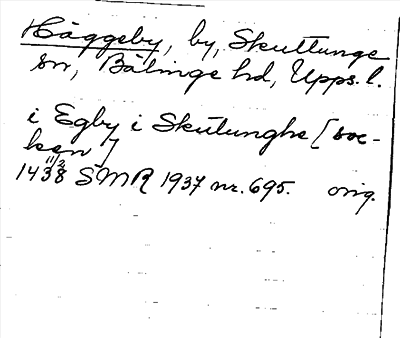 Häggeby, by, Skuttunge
sn, Bälinge hd, Upps. l.
i Egby i Skutunghe [soc-
ken]
1438 11/2 SMR 1937 nr. 695. orig.